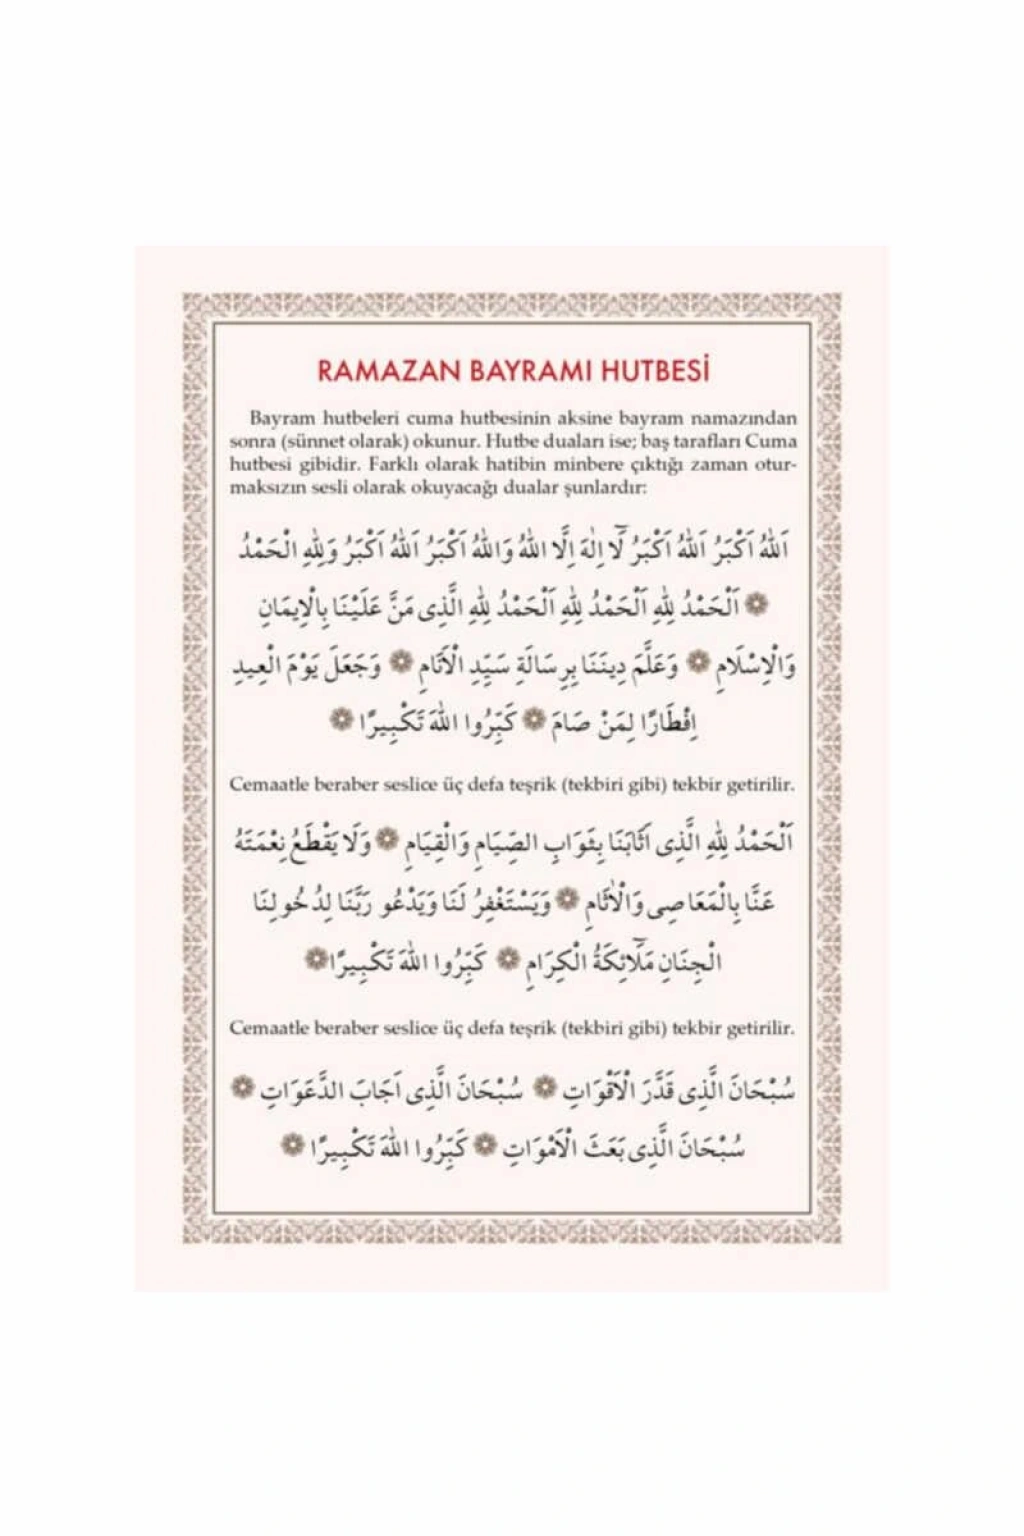 RAMAZAN BAYRAMI HUTBESİ
Bayram hutbeleri cuma hutbesinin aksine bayram namazından
sonra (sünnet olarak) okunur. Hutbe duaları ise; baş tarafları Cuma
hutbesi gibidir. Farklı olarak hatibin minbere çıktığı zaman otur-
maksızın sesli olarak okuyacağı dualar şunlardır:
اَللّٰهُ اَكْبَرُ اَللّٰهُ اَكْبَرُ لَٓا اِلٰهَ اِلَّا اللّٰهُ وَاللّٰهُ اَكْبَرُ اَللّٰهُ اَكْبَرُ وَلِلّٰهِ الْحَمْدُ
❁ اَلْحَمْدُ لِلّٰهِ اَلْحَمْدُ لِلّٰهِ اَلْحَمْدُ لِلّٰهِ الَّذِى مَنَّ عَلَيْنَا بِالْاِيمَانِ
وَالْاِسْلَامِ ❁ وَعَلَّمَ دِينَنَا بِرِسَالَةِ سَيِّدِ الْاَنَامِ ❁ وَجَعَلَ يَوْمَ الْعِيدِ
اِفْطَارًا لِمَنْ صَامَ ❁ كَبِّرُوا اللّٰهَ تَكْبِيرًا ❁
Cemaatle beraber seslice üç defa teşrik (tekbiri gibi) tekbir getirilir.
اَلْحَمْدُ لِلّٰهِ الَّذِى اَثَابَنَا بِثَوَابِ الصِّيَامِ وَالْقِيَامِ ❁ وَلَا يَقْطَعُ نِعْمَتَهُ
عَنَّا بِالْمَعَاصِى وَالْاٰثَامِ ❁ وَيَسْتَغْفِرُ لَنَا وَيَدْعُو رَبَّنَا لِدُخُولِنَا
الْجِنَانِ مَلَٓائِكَةُ الْكِرَامِ ❁ كَبِّرُوا اللّٰهَ تَكْبِيرًا ❁
Cemaatle beraber seslice üç defa teşrik (tekbiri gibi) tekbir getirilir.
سُبْحَانَ الَّذِى قَدَّرَ الْاَقْوَاتِ ❁ سُبْحَانَ الَّذِى اَجَابَ الدَّعَوَاتِ ❁
سُبْحَانَ الَّذِى بَعَثَ الْاَمْوَاتِ ❁ كَبِّرُوا اللّٰهَ تَكْبِيرًا ❁